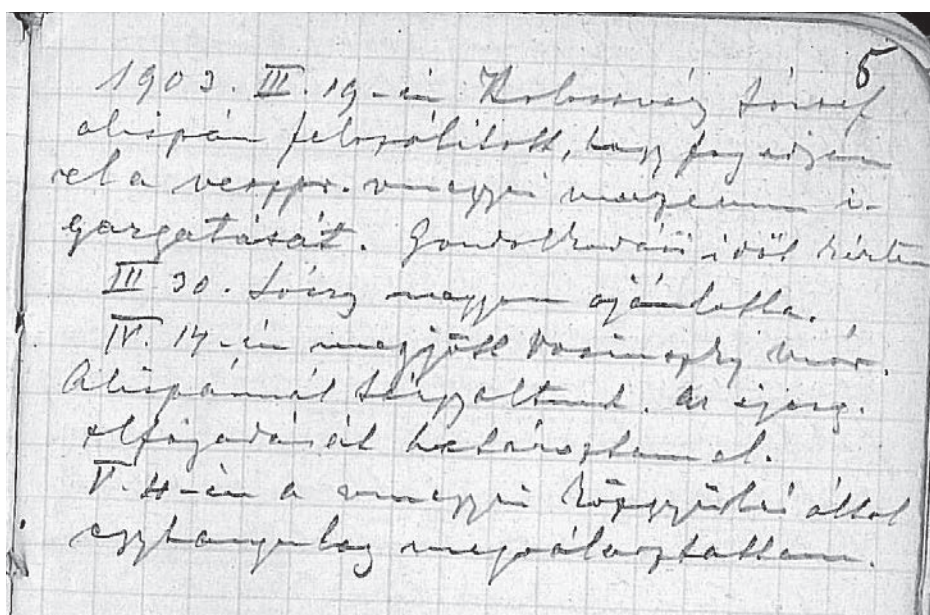 5
1903. III. 19-én Kolossváry József
alispán felszólított, hogy fogadjam
el a veszpr. vmegyei muzeum i-
gazgatását. Gondolkodási időt kértem
III 30. Lóczy nagyon ajánlotta.
IV. 14-én megjött Wosinszky Mór.
Alispánnál tárgyaltunk. Az igazg.
elfogadását határoztam el.
V. 4-én a vmegyei közgyűlés által
egyhangulag megválasztattam.